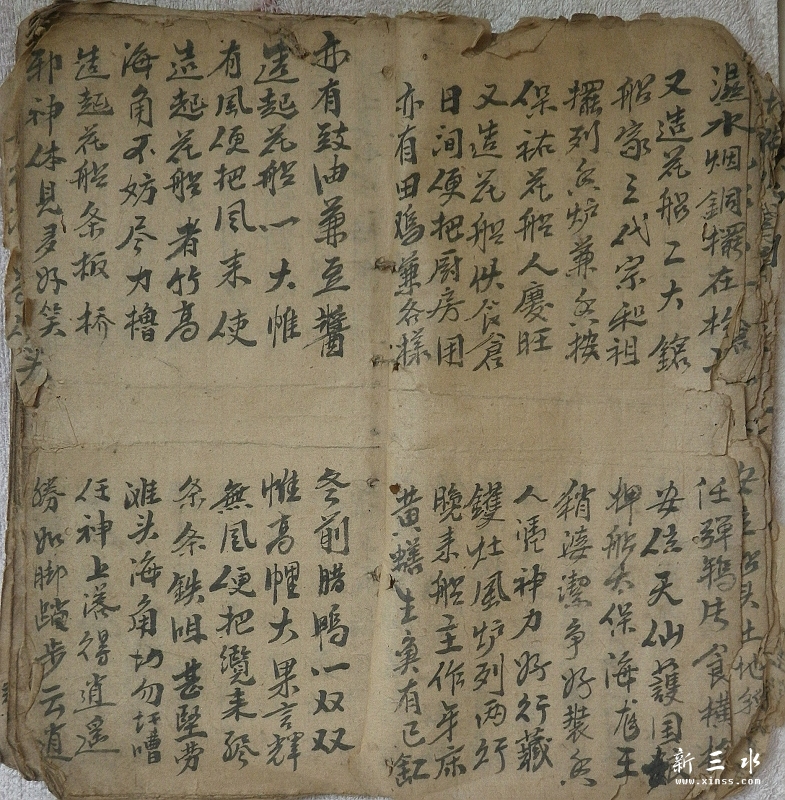 温水烟銅擺在
任彈鴉片食橫
又造花船二大
安 天仙護国
船家三代宗和祖
押船太保海龍王
擺列香炉兼香按
稍婆潔爭好裝香
保祐花船人慶旺
人憑神力好行藏
又造花船伙食倉
鑊灶風炉列两行
日间便把厨房用
晚来船主作牙床
亦有田鸡兼各樣
黄蟮生魚有已缸
亦有豉油兼豆醬
冬前腊鴨一双双
造起花船一大帷
帷高 大果言輝
有風便把風来使
無風便把纜来
造起花船者竹高
条条鉄咀甚堅劳
海角不妨尽力撸
滩头海角切勿 嘈
造起花船条板桥
任神上落得逍遥
邪神体見多好笑
勝如脚踏步云逍
新三水
www.xinss.com